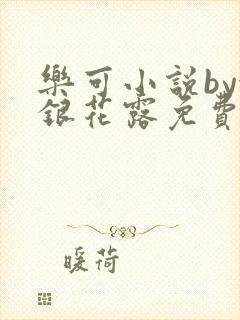 樂可小說by
銀花露免費
暖荷